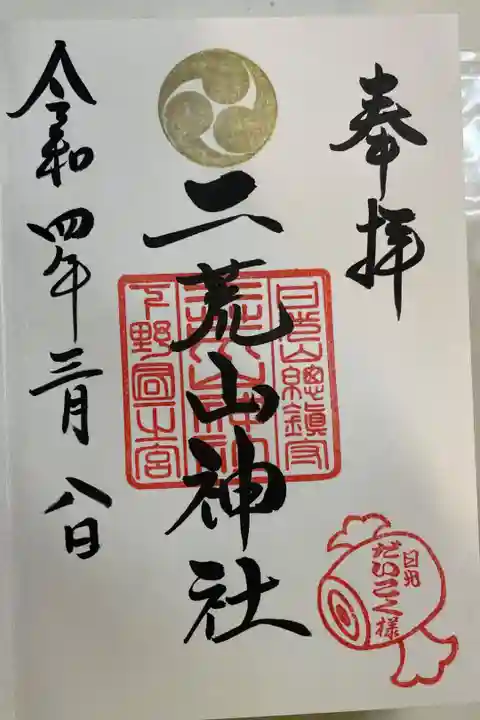 奉拝
日光山總鎮守
二荒山神社
下野國一之宮
令和四年三月八日
日光
だいこく様